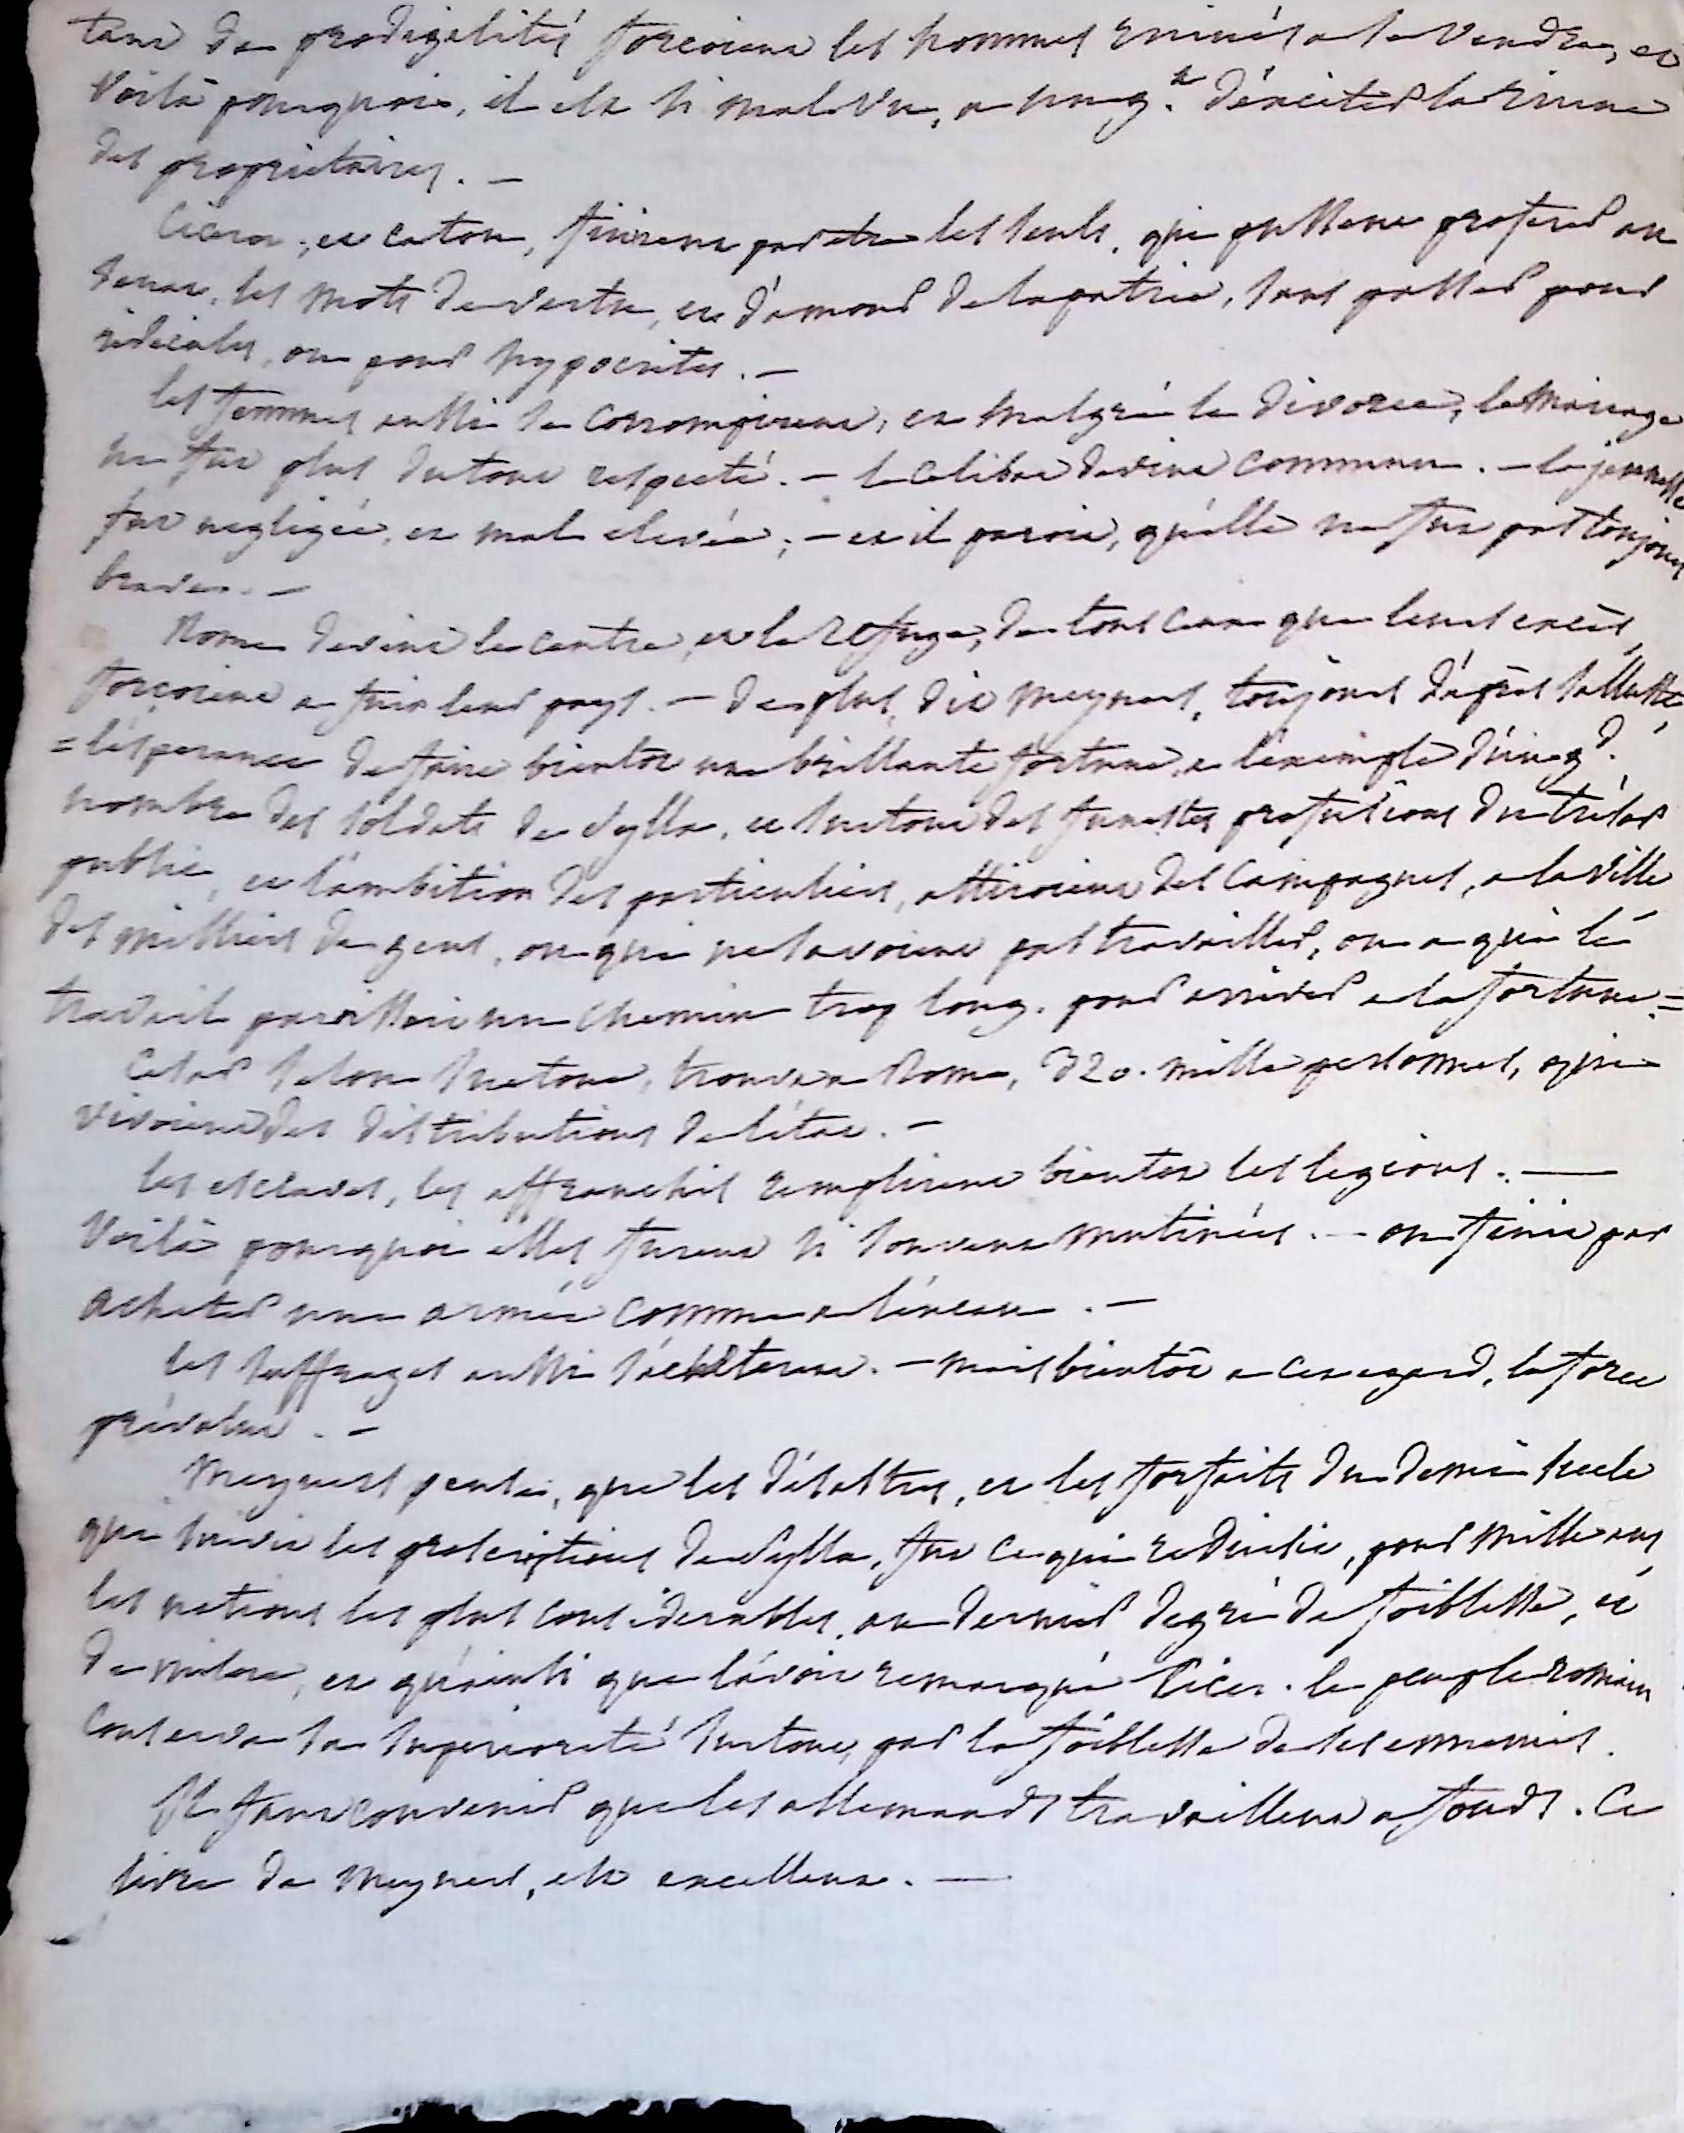 tant de prodigalités forcoient les hommes ruinés a se vendre, et
voilà pourquoi, il est si mal vu, a un g.d d'exciter la ruine
des proprietaires. –
Ciceron, et caton, finirent par etre les seuls, qui pussent proferer au
senat, les mots de vertu, et d'amour de la patrie, sans passer pour
ridicules, ou pour hypocrites. –
les femmes aussi se corrompirent, et malgré le divorce, le mariage
ne fut plus du tout respecté. – le celibat devint commun. – la jeunesse
fut negligée, et mal elevée ; – et il paroit, qu'elle ne fut pas toujours
brave. –
Rome devint le centre, et le refuge, de tous ceux que leurs excès
forçoient a fuir leur pays. – de plus, dit meyners, toujours d'après salluste,
= l'ésperance de faire bientôt une brillante fortune, a l'exemple d'un g.d
nombre des soldats de sylla, et surtout des funestes profusions du trésor
public, et l'ambition des particuliers, attiroient des campagnes, a la ville
des milliers de gens, ou qui ne savoient pas travailler, ou a qui le
travail paroissoit un chemin trop long, pour arriver a la fortune. =
Cesar selon suetone, trouva a Rome, 320. mille personnes, qui
vivoient des distributions de l'état. –
les esclaves, les affranchis remplirent bientot les legions. –
Voilà pourquoi elles furent si souvent mutinées. – on finit par
acheter une armée comme a l'encan. –
les suffrages aussi s'achetterent. – mais bientôt a cet egard, la force
prévalut. –
Meyners pense, que les désastres, et les forfaits du demi siecle
qui suivit les proscriptions de Sylla, fut ce qui reduisit, pour mille ans,
les nations les plus considerables, au dernier degré de foiblesse, et
de misere, et qu'ainsi que l'avoit remarqué Cicer. le peuple romain
conserva sa superiorité surtout, par la foiblesse de ses ennemis.
Il faut convenir que les allemands travaillent a fonds. Ce
livre de Meyners, est excellent. –